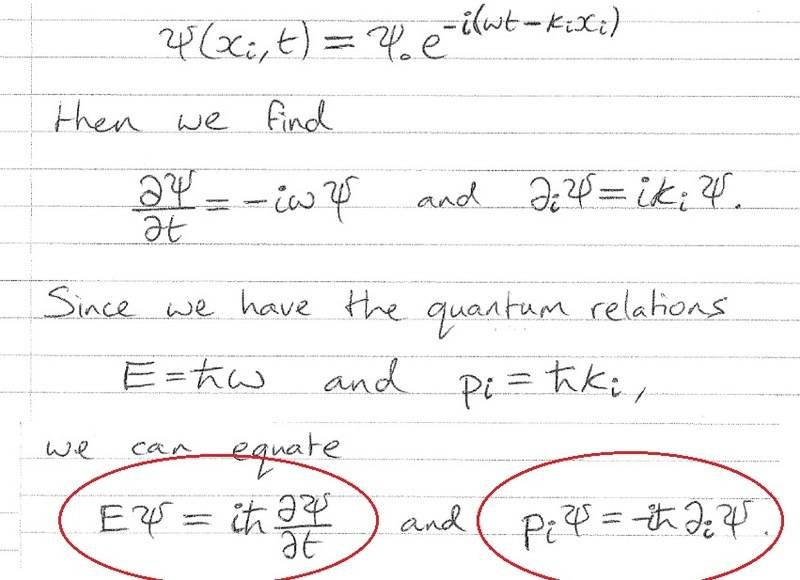 Ψ(xᵢ,t) = Ψ₀e^{-i(ωt-kᵢxᵢ)}
then we find
∂Ψ/∂t = -iωΨ and ∂ᵢΨ = ikᵢΨ.
Since we have the quantum relations
E = ℏω and pᵢ = ℏkᵢ,
we can equate
EΨ = iℏ ∂Ψ/∂t and pᵢΨ = -iℏ ∂ᵢΨ.